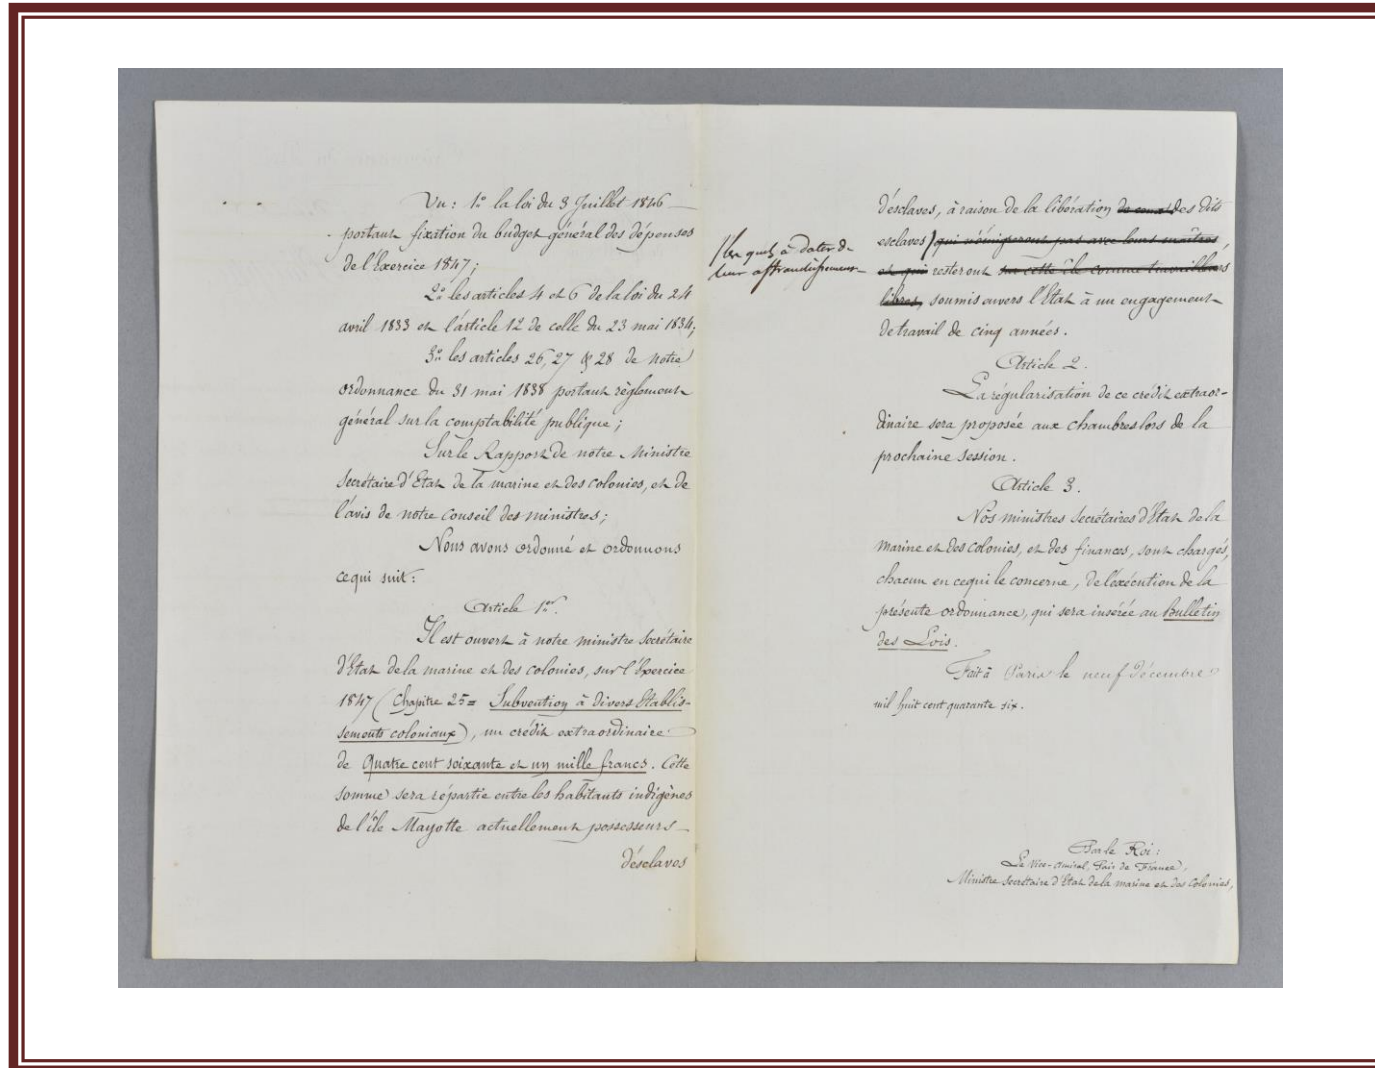 Vu: 1º la loi du 3 Juillet 1846
portant fixation du budget général des dépenses
de l'Exercice 1847;
2º les articles 4 et 6 de la loi du 24
avril 1833 et l'article 12 de celle du 23 mai 1834;
3º les articles 26, 27 & 28 de notre
ordonnance du 31 mai 1838 portant règlement
général sur la comptabilité publique;
Sur le Rapport de notre Ministre
Secrétaire d'Etat de la marine et des colonies, et de
l'avis de notre Conseil des ministres;
Nous avons ordonné et ordonnons
ce qui suit:
Article 1er.
Il est ouvert à notre ministre Secrétaire
d'Etat de la marine et des colonies, sur l'Exercice
1847 (Chapitre 25 = Subvention à divers Etablis-
sements coloniaux), un crédit extraordinaire
de Quatre cent soixante et un mille francs. Cette
somme sera répartie entre les habitants indigènes
de l'île Mayotte actuellement possesseurs
d'esclaves
d'esclaves, à raison de la libération des dits
/ les quels à dater de
leur affranchissement
esclaves / qui n'émigreront pas avec leurs maîtres
et qui resteront sur cette île comme travailleurs
libres, soumis envers l'Etat à un engagement
de travail de cinq années.
Article 2.
La régularisation de ce crédit extraor-
dinaire sera proposée aux chambres lors de la
prochaine session.
Article 3.
Nos ministres Secrétaires d'Etat de la
marine et des colonies, et des finances, sont chargés,
chacun en ce qui le concerne, de l'exécution de la
présente ordonnance, qui sera insérée au Bulletin
des Lois.
Fait à Paris le neuf décembre
mil huit cent quarante six.
Par le Roi:
Le Vice-Amiral, Pair de France,
Ministre Secrétaire d'Etat de la marine et des Colonies,